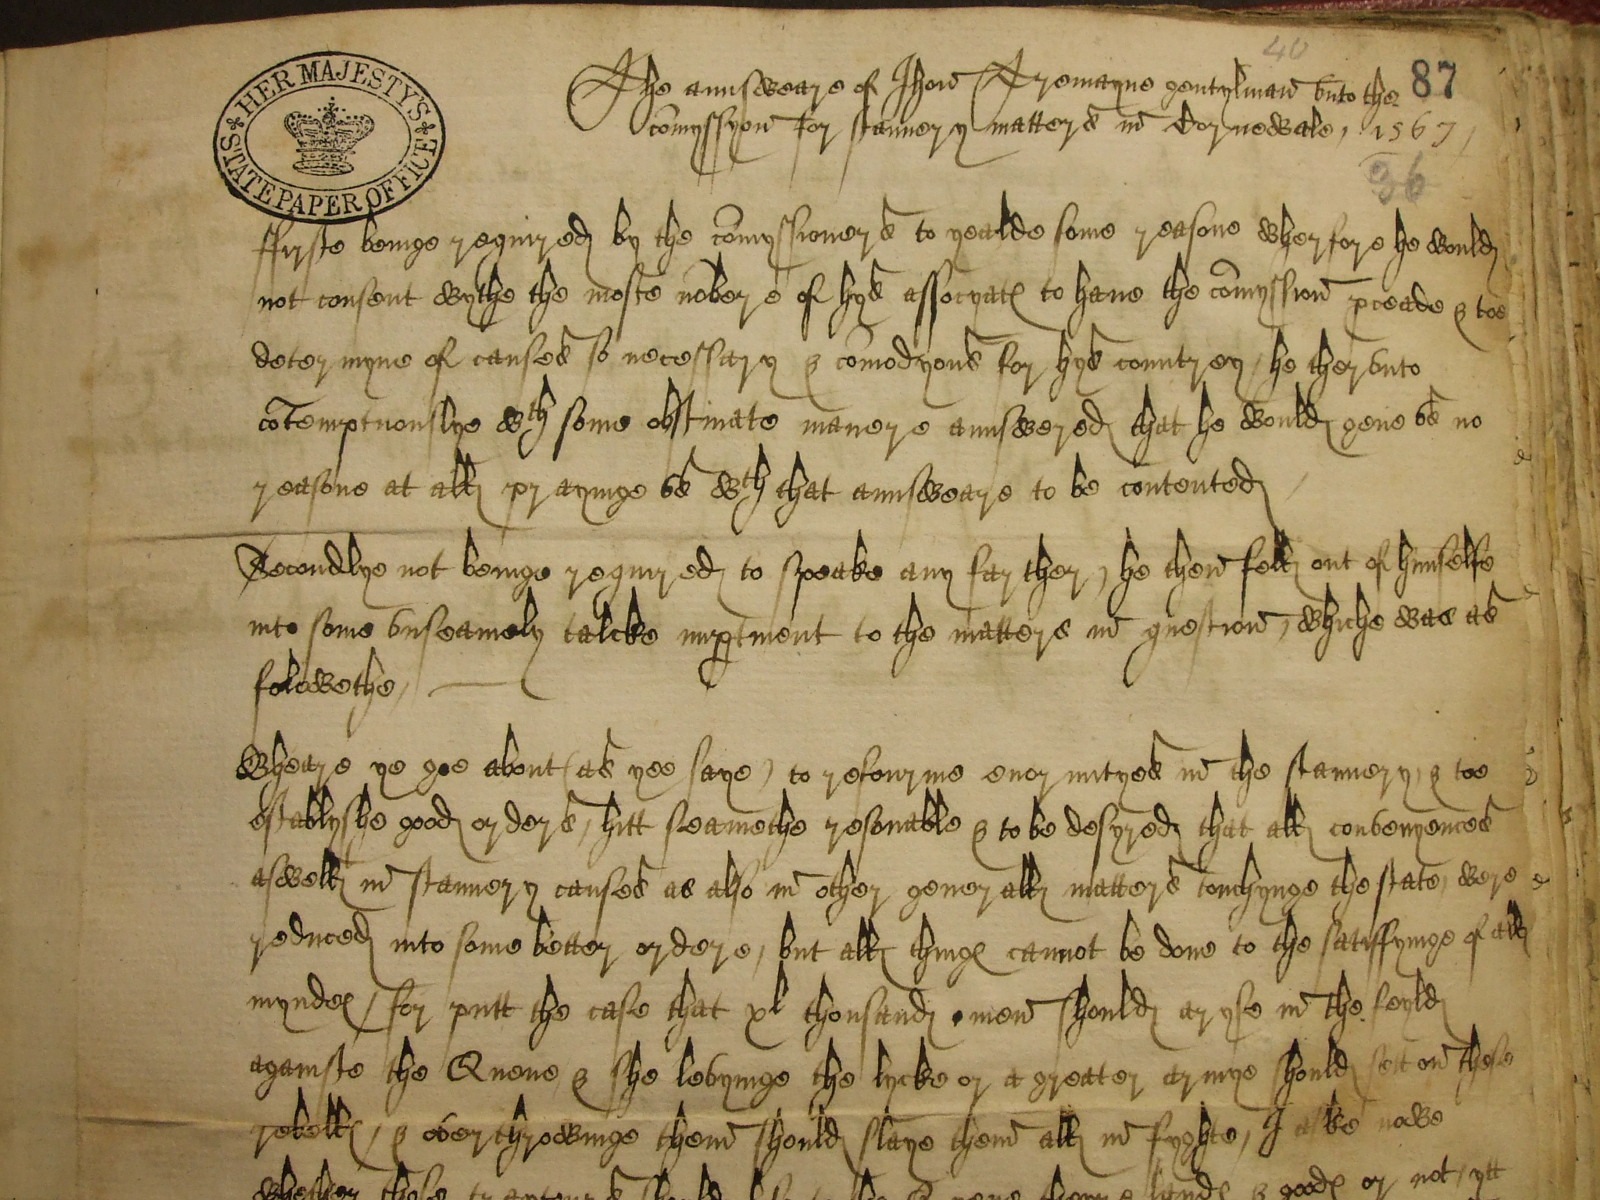 HER MAJESTY'S
STATE PAPER OFFICE
40
87
The annsweare of Jhon Tremayne gentylman vnto the
comyssyon for stannery matters in Cornewale, 1567,
36
ffyrste beinge requyred by the comyssioners to yealde some reasone wherfore he would
not consent wythe the moste nobere of hys assocyates to haue the comyssion pceade & toe
determyne of causes so necessary & comodyous for hys countrey, he thervnto
cotemptuouslye wth some obstinate manere annswered that he would geue vs no
reasone at all prayinge vs wth that annsweare to be contented /
Secondlye not beinge requyred to speake any farther, he then fell out of himselfe
into some vnseamely talcke imptinent to the matters in question, whiche was as
folowethe,
Wheare ye goe about (as yee saye) to refourme enormityes in the stannery, & toe
establyshe good orders, hitt seamethe resonable & to be desyred that all convenyences
aswell in stannery causes as also in other generall matters touchynge the state, were
reduced into some better ordere, but all thinges cannot be done to the satisffyinge of all
myndes, for putt the case that xl thousand men should aryse in the feyld
againste the Quene & she levyinge the lycke or a greater armye should sett on these
rebells, & overthrowinge them should slaye them all in fyghte, I aske nowe
whether these traytours should to the Quene theyre landes & goodes or not, ytt